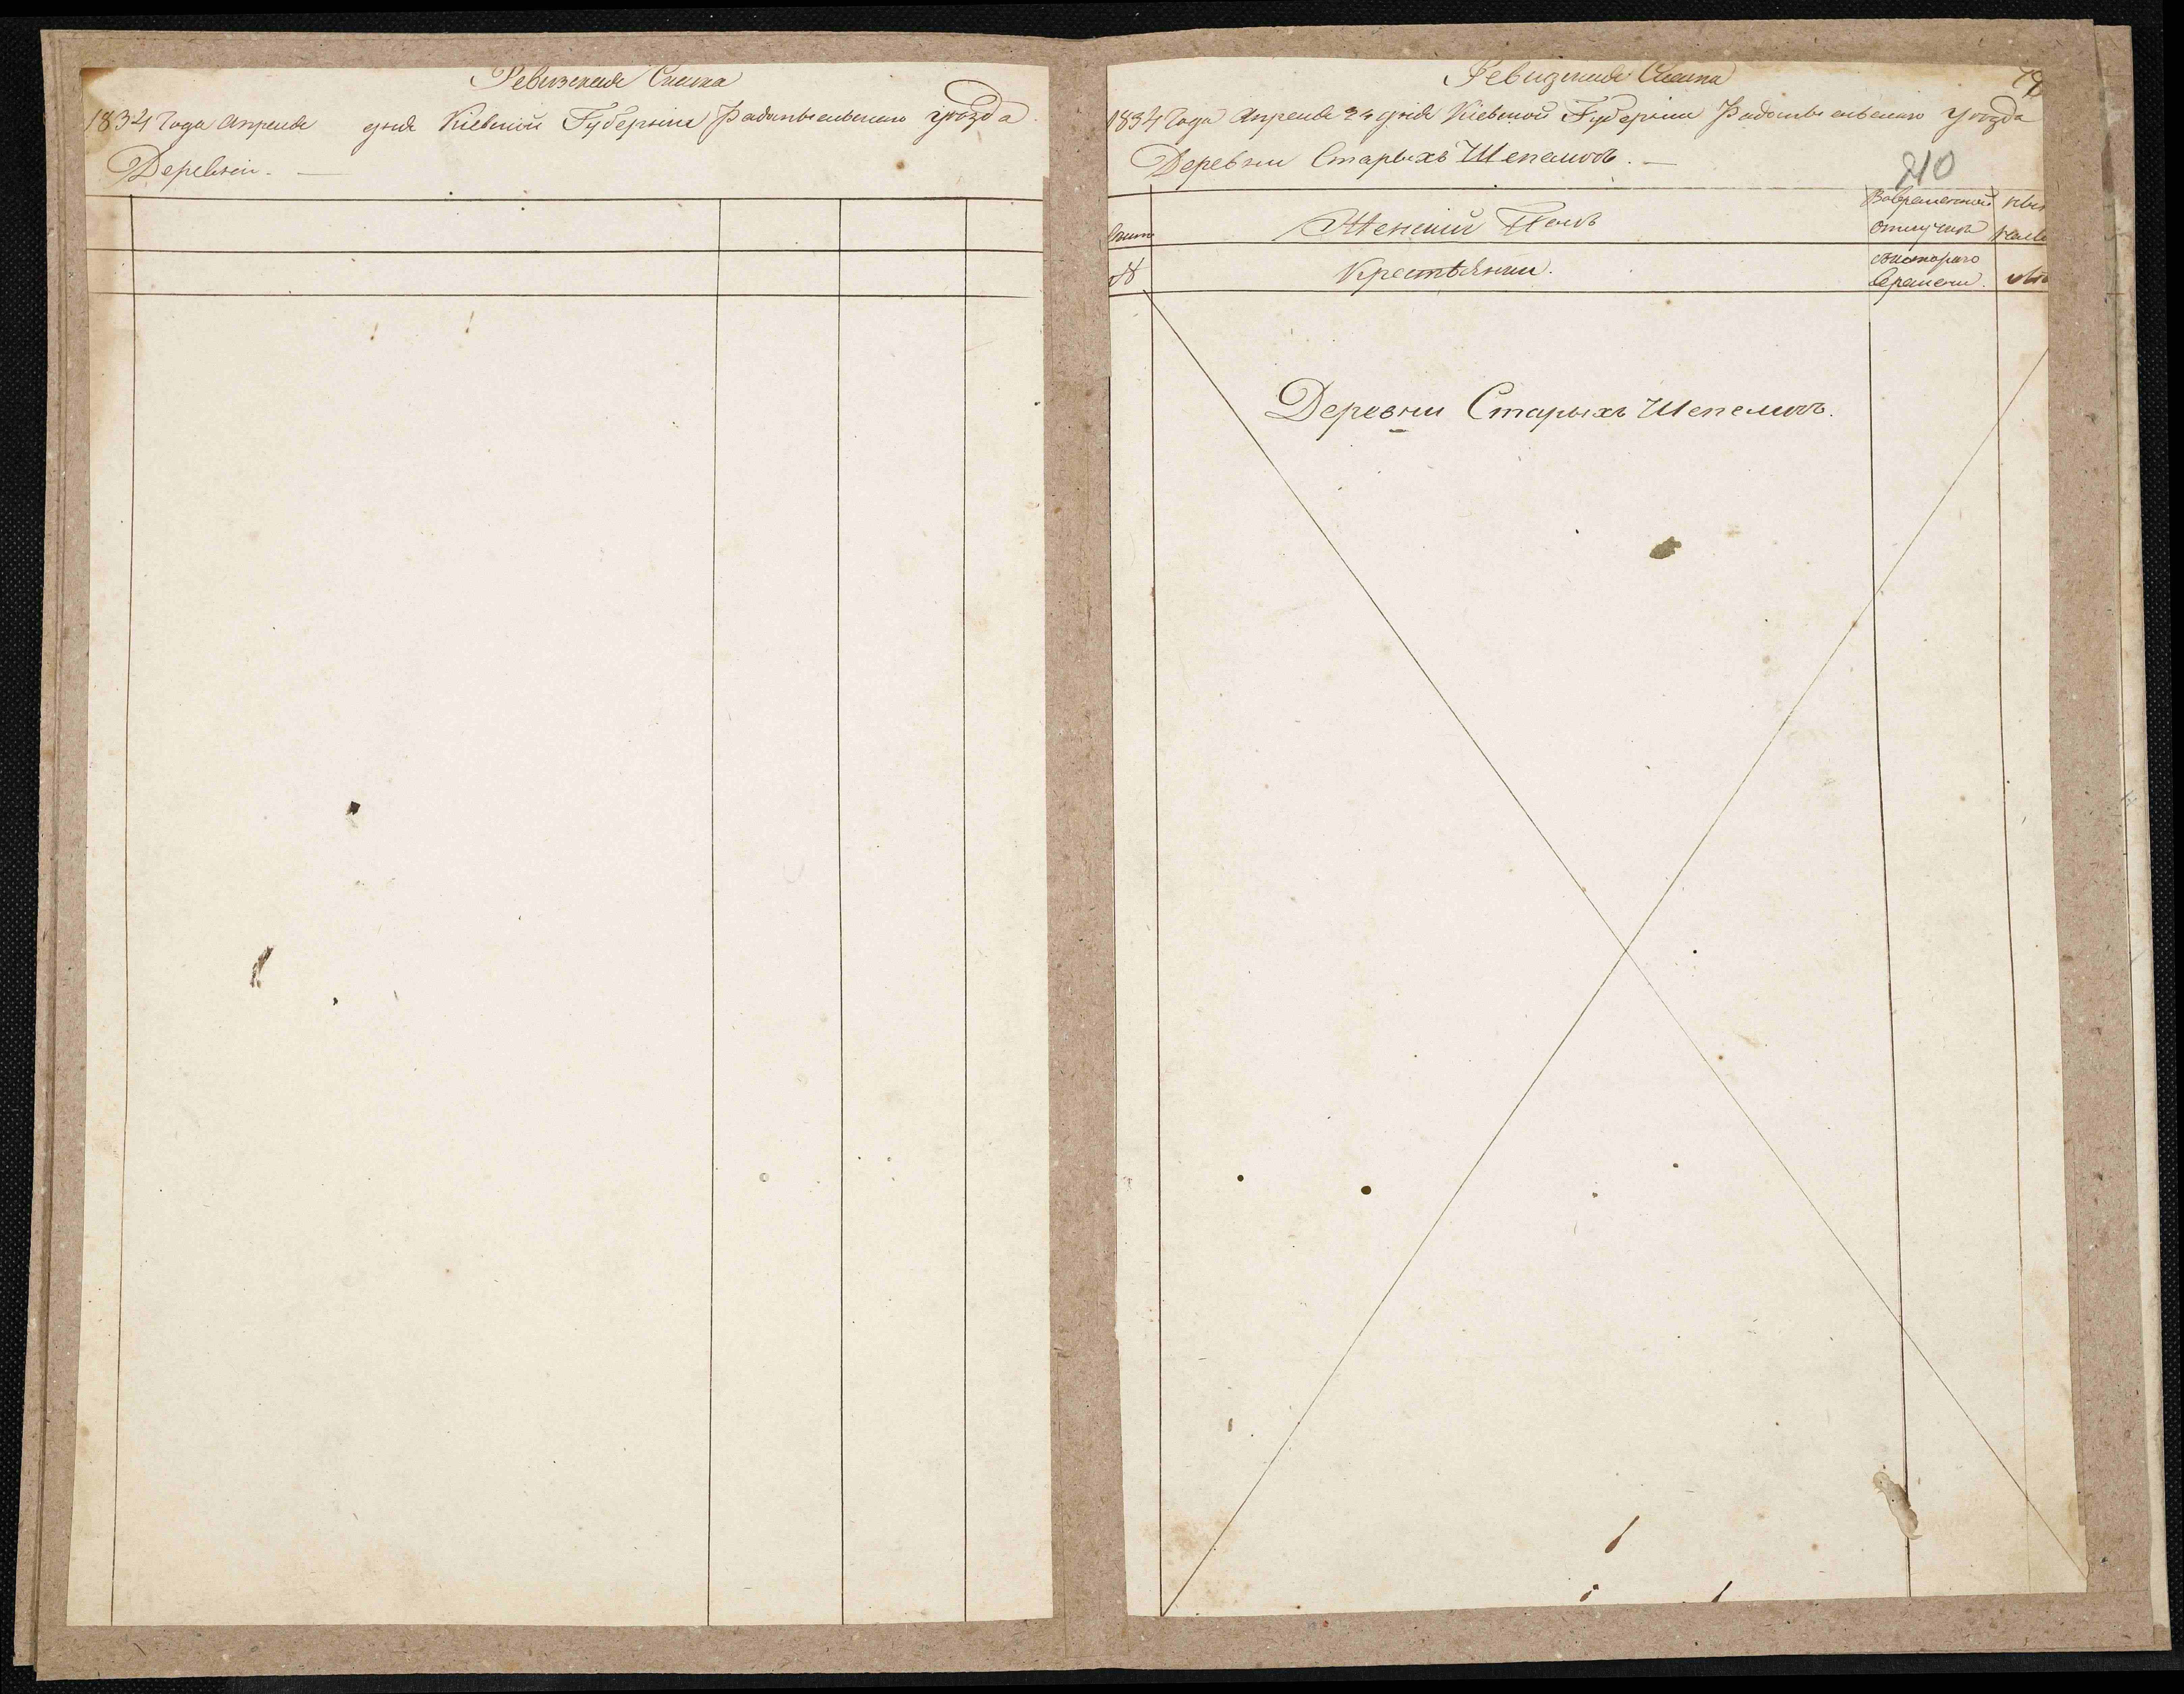 Ревизская Сказка
1834 Года Апреля дня Кіевской Губерніи Радомысльскаго уѣзда.
Деревни. —
Ревизская Сказка
1834 Года Апреля 24 дня Кіевской Губерніи Радомысльскаго уѣзда
Деревни Старыхъ Шепеличь. —
210
Женскій Полъ
Вовременной
отлучкѣ
№
Крестьянки.
скотораго
времени.
Деревни Старыхъ Шепеличь.